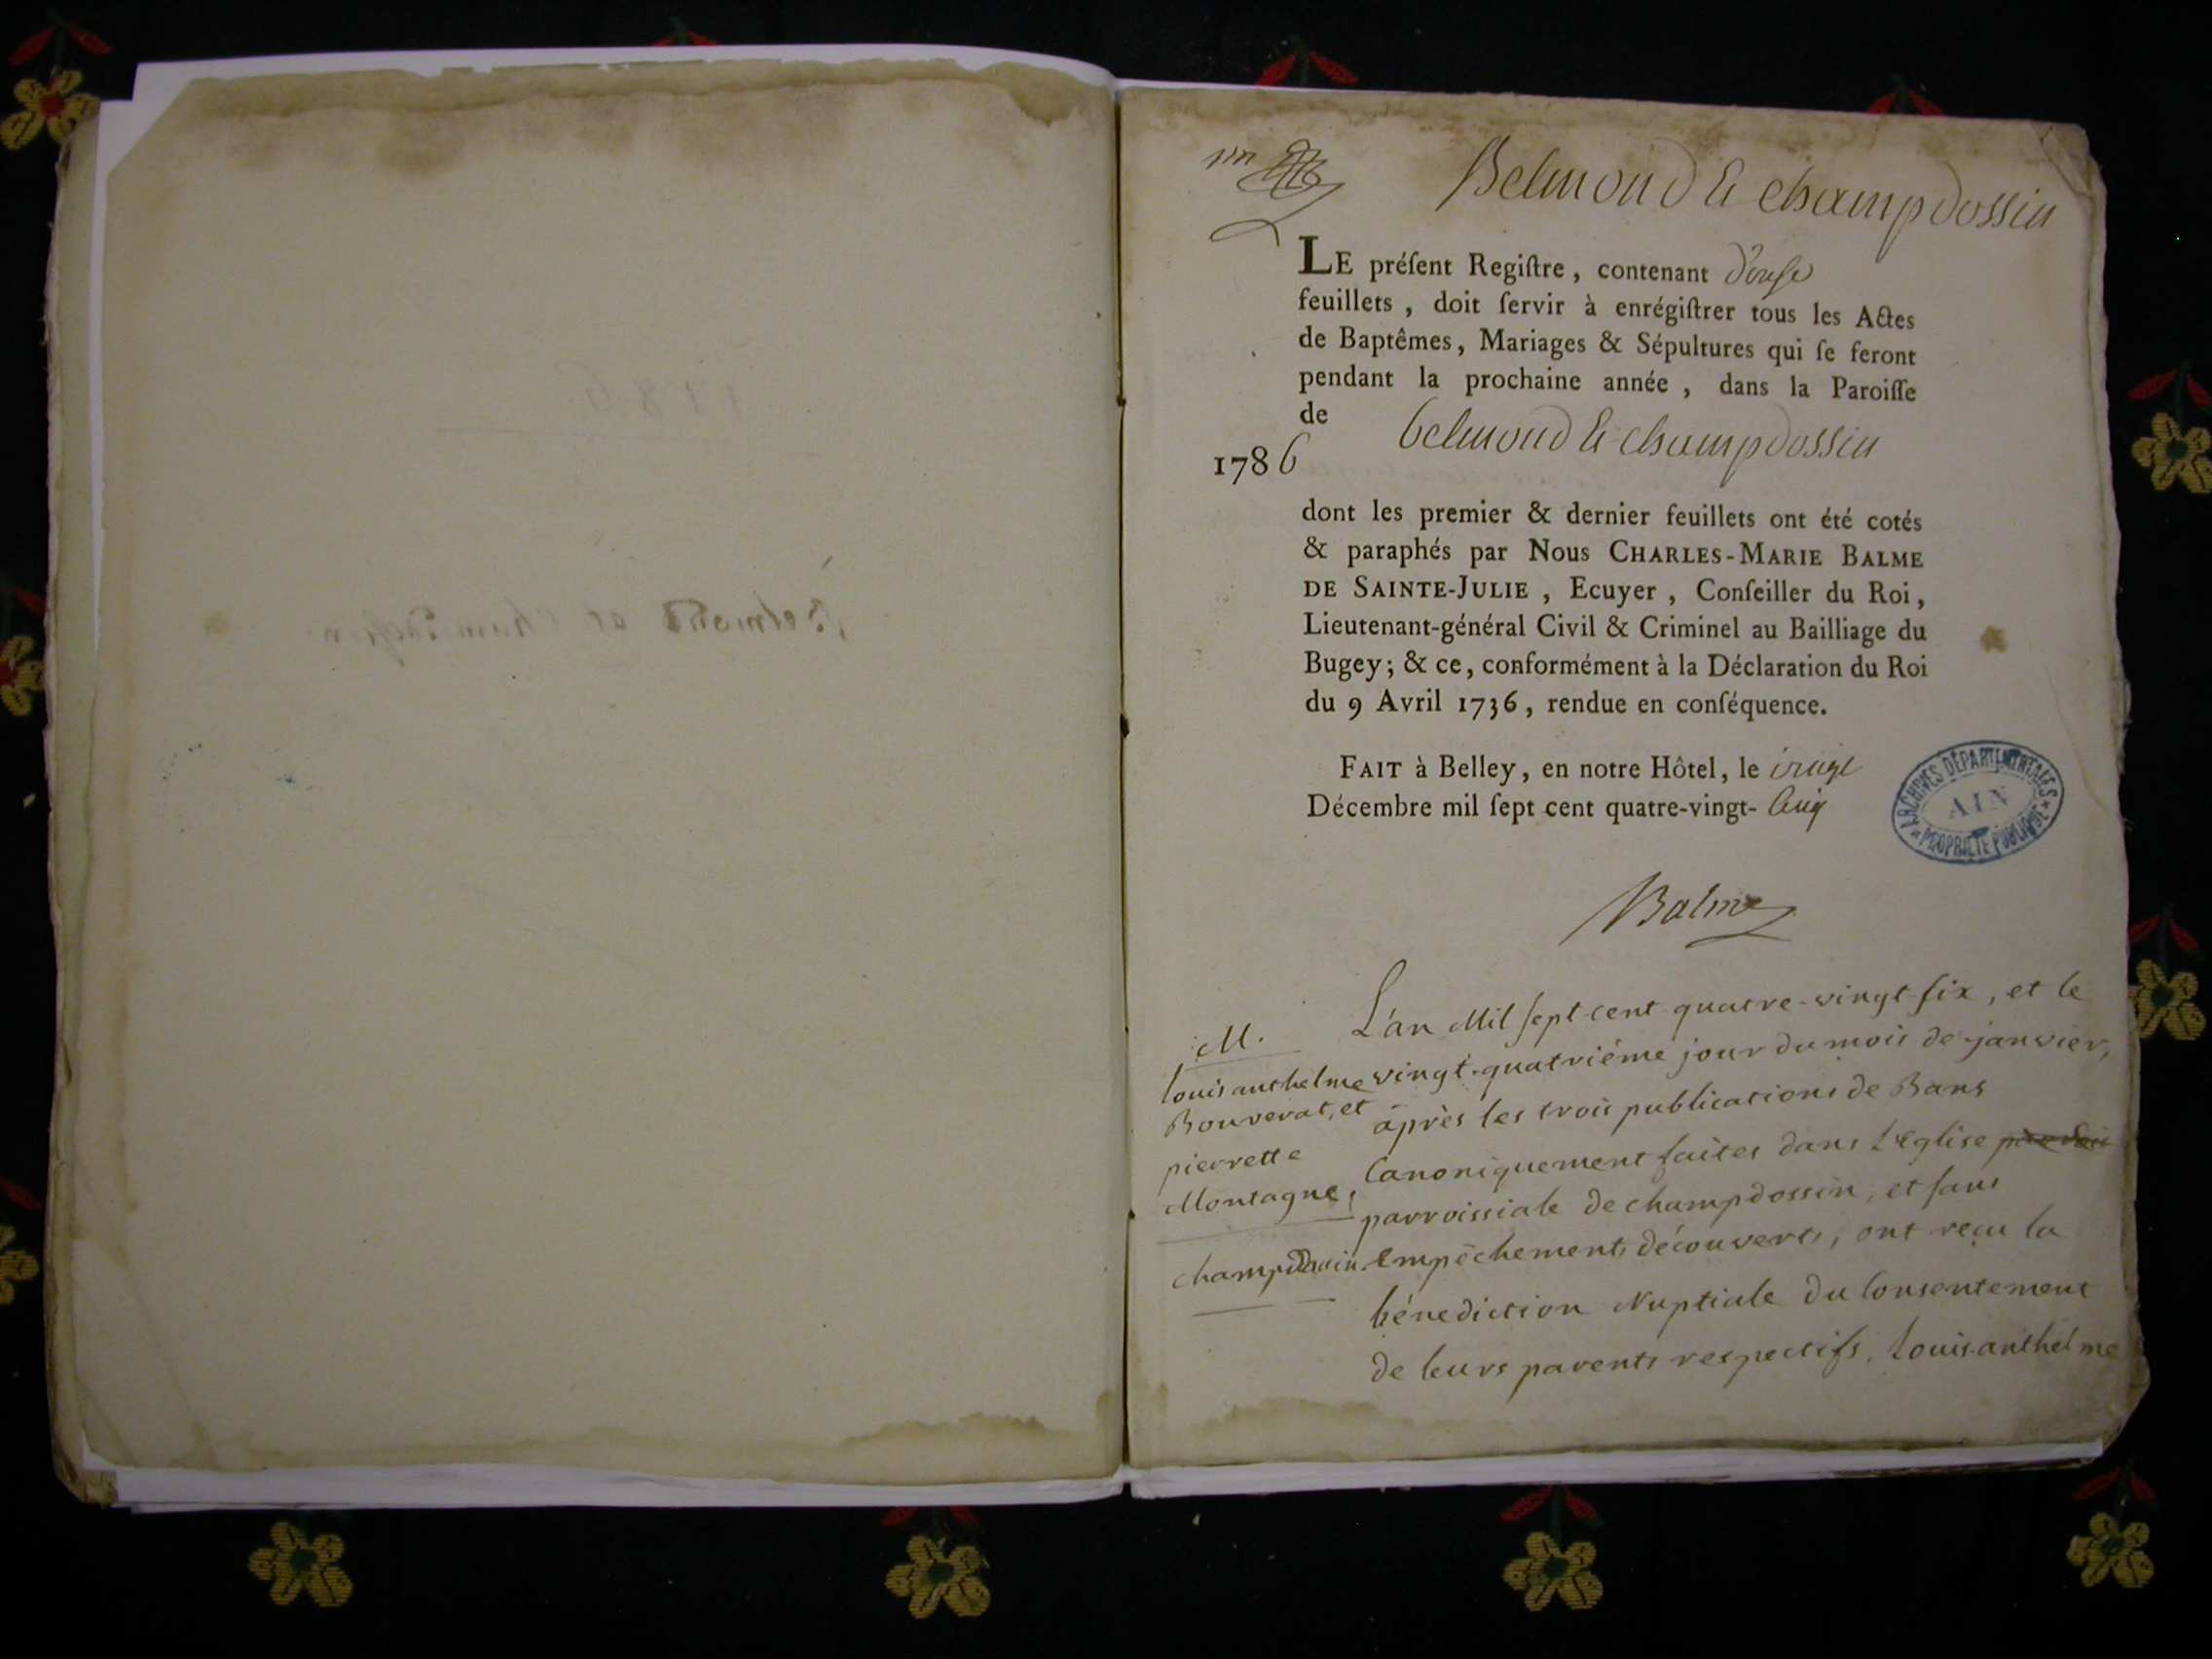 1786
Belmond et Champdossin
un
Belmond & champdossin
LE préſent Regiſtre, contenant douse
feuillets, doit ſervir à enrégiſtrer tous les Actes
de Baptêmes, Mariages & Sépultures qui ſe feront
pendant la prochaine année, dans la Paroiſſe
de
belmond & champdossin
1786
dont les premier & dernier feuillets ont été cotés
& paraphés par Nous CHARLES-MARIE BALME
DE SAINTE-JULIE, Ecuyer, Conſeiller du Roi,
Lieutenant-général Civil & Criminel au Bailliage du
Bugey; & ce, conformément à la Déclaration du Roi
du 9 Avril 1736, rendue en conſéquence.
FAIT à Belley, en notre Hôtel, le
Décembre mil ſept cent quatre-vingt- Cinq
ARCHIVES DÉPARTEMENTALES
AIN
PROPRIÉTÉ PUBLIQUE
Balme
M.
louis anthelme
Bouverat, et
pierrette
Montagne,
champdossin
L'an Mil ſept cent quatre-vingt-ſix, et le
vingt-quatriéme jour du mois de janvier,
après les trois publications de Bans
Canoniquement faites dans L'Eglise
parroissiale de champdossin, et ſans
Empêchements découverts, ont reçu la
bénediction Nuptiale du Consentement
de leurs parents respectifs, Louis anthelme